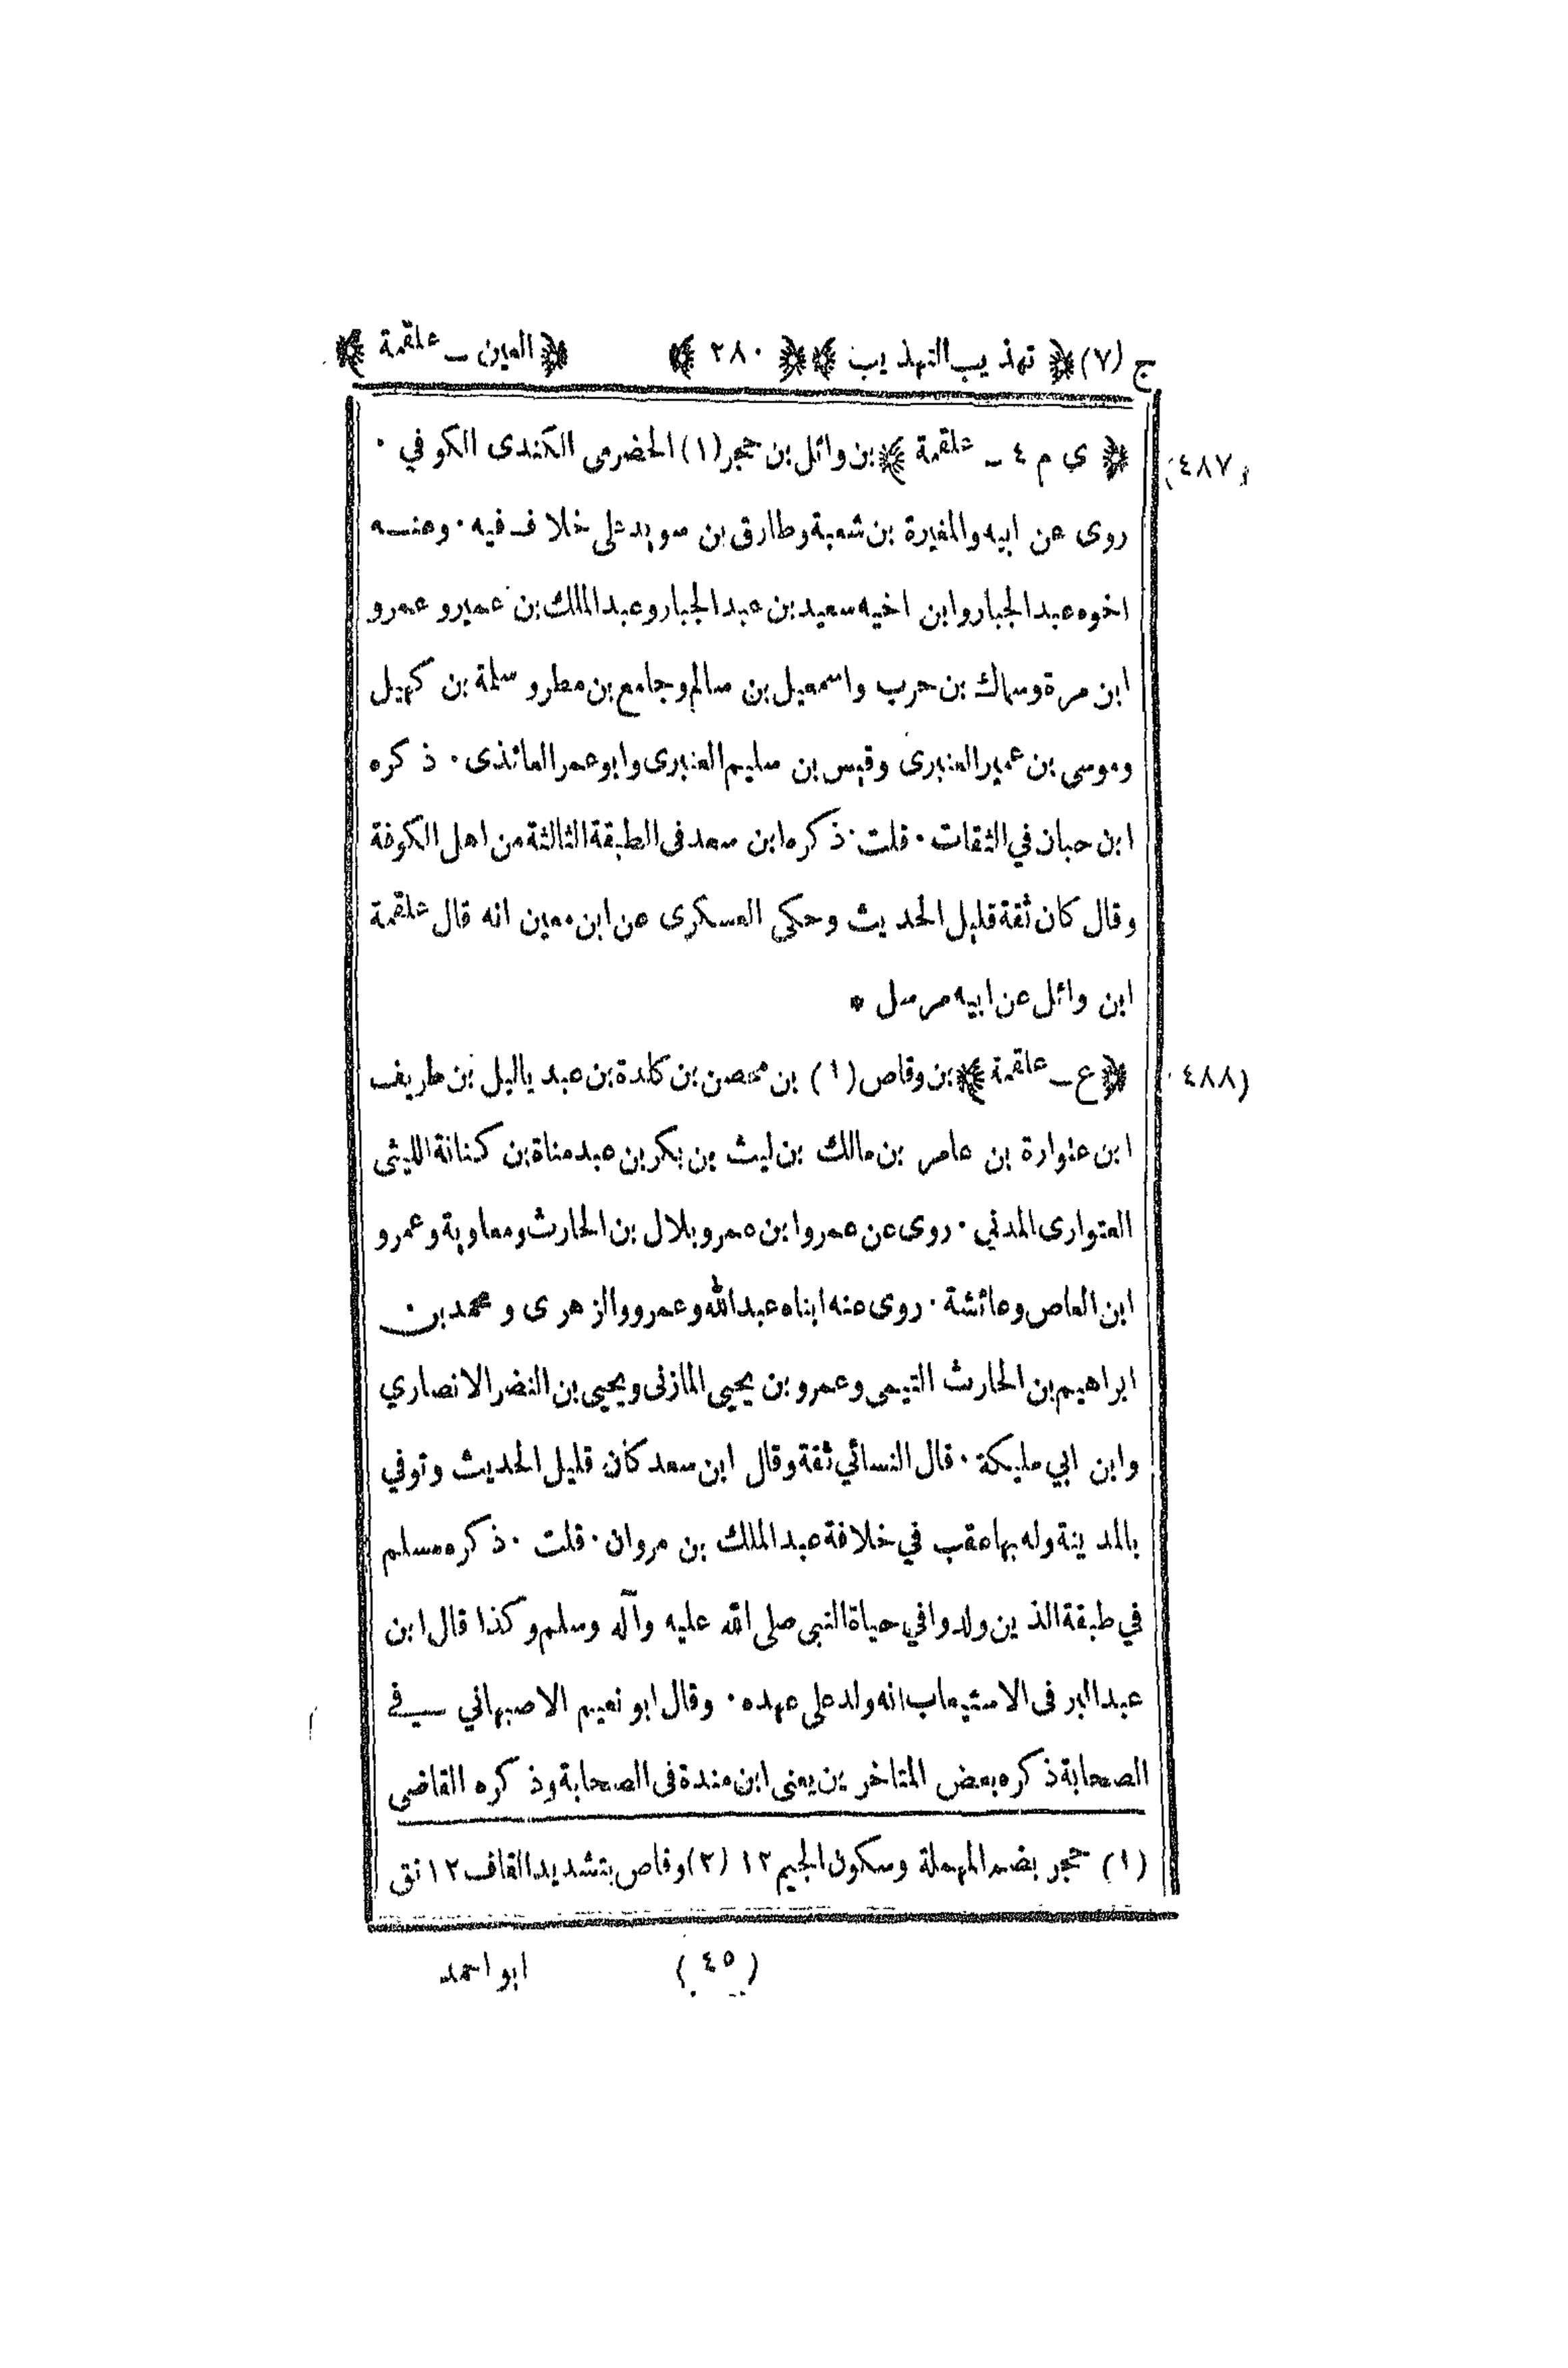 ج (٧) ﴿ تهذيب التهذيب ﴾ ﴿ ٢٨٠ ﴾ ﴿ العين ـ علقمة ﴾
(٤٨٧) ﴿ ي م ٤ ـ علقمة ﴾ بن وائل بن حجر (١) الحضرمى الكندى الكوفي ٠
روى عن ابيه والمغيرة بن شعبة وطارق بن سويد على خلاف فيه ٠ وعنه
اخوه عبد الجبار وابن اخيه سعيد بن عبد الجبار وعبد الملك بن عمير وعمرو
ابن مرة وسماك بن حرب واسمعيل بن سالم وجامع بن مطر وسلمة بن كهيل
وموسى بن عمير العنبرى وقيس بن سليم العنبرى وابو عمر العائذى ٠ ذكره
ابن حبان في الثقات ٠ قلت ٠ ذكره ابن سعد فى الطبقة الثالثة من اهل الكوفة
وقال كان ثقة قليل الحديث وحكى العسكرى عن ابن معين انه قال علقمة
ابن وائل عن ابيه مرسل *
(٤٨٨) ﴿ ع ـ علقمة ﴾ بن وقاص (١) بن محصن بن كلدة بن عبد ياليل بن طريف
ابن عتوارة بن عامر بن مالك بن ليث بن بكر بن عبد مناة بن كنانة الليثى
العتوارى المدني ٠ روى عن عمر وابن عمر وبلال بن الحارث ومعاوية وعمرو
ابن العاص وعائشة ٠ روى عنه ابناه عبد الله وعمرو والزهرى ومحمد بن
ابراهيم بن الحارث التيمى وعمرو بن يحيى المازنى ويحيى بن النضر الانصاري
وابن ابي مليكة ٠ قال النسائي ثقة وقال ابن سعد كان قليل الحديث وتوفي
بالمدينة وله بها عقب في خلافة عبد الملك بن مروان ٠ قلت ٠ ذكره مسلم
في طبقة الذين ولدوا في حياة النبى صلى الله عليه وآله وسلم وكذا قال ابن
عبد البر فى الاستيعاب انه ولد على عهده ٠ وقال ابو نعيم الاصبهاني في
الصحابة ذكره بعض المتاخرين يعنى ابن مندة فى الصحابة وذكره القاضى
(١) حجر بضم المهملة وسكون الجيم ١٢ (٢) وقاص بتشديد القاف ١٢ تق
(٤٥) ابو احمد